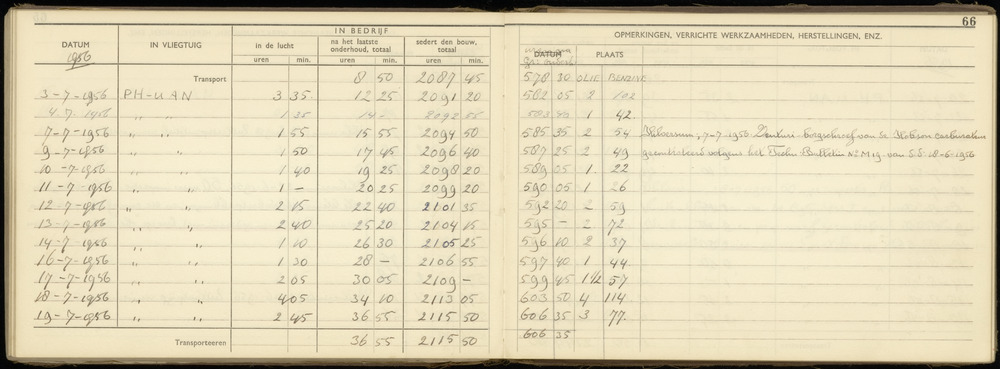 66
IN BEDRIJF
OPMERKINGEN, VERRICHTE WERKZAAMHEDEN, HERSTELLINGEN, ENZ.
DATUM IN VLIEGTUIG in de lucht na het laatste onderhoud, totaal sedert den bouw, totaal DATUM PLAATS
1956 uren min. uren min. uren min.
Transport 8 50 2087 45 578 30 OLIE BENZINE
3-7-1956 PH-UAN 3 35 12 25 2091 20 582 05 2 102
4-7-1956 " " 1 35 14 - 2092 55 583 40 1 42
7-7-1956 " " 1 55 15 55 2094 50 585 35 2 54 Hilversum, 7-7-1956 Venturi borgschroef van de Hobson carburateur
9-7-1956 " " 1 50 17 45 2096 40 587 25 2 49 gecontroleerd volgens het Techn Bulletin No M19 van 18-6-1956
10-7-1956 " " 1 40 19 25 2098 20 589 05 1 22
11-7-1956 " " 1 - 20 25 2099 20 590 05 1 26
12-7-1956 " " 2 15 22 40 2101 35 592 20 2 59
13-7-1956 " " 2 40 25 20 2104 15 595 - 2 72
14-7-1956 " " 1 10 26 30 2105 25 596 10 2 37
16-7-1956 " " 1 30 28 - 2106 55 597 40 1 44
17-7-1956 " " 2 05 30 05 2109 - 599 45 1½ 57
18-7-1956 " " 4 05 34 10 2113 05 603 50 4 114
19-7-1956 " " 2 45 36 55 2115 50 606 35 3 77
Transporteeren 36 55 2115 50 606 35